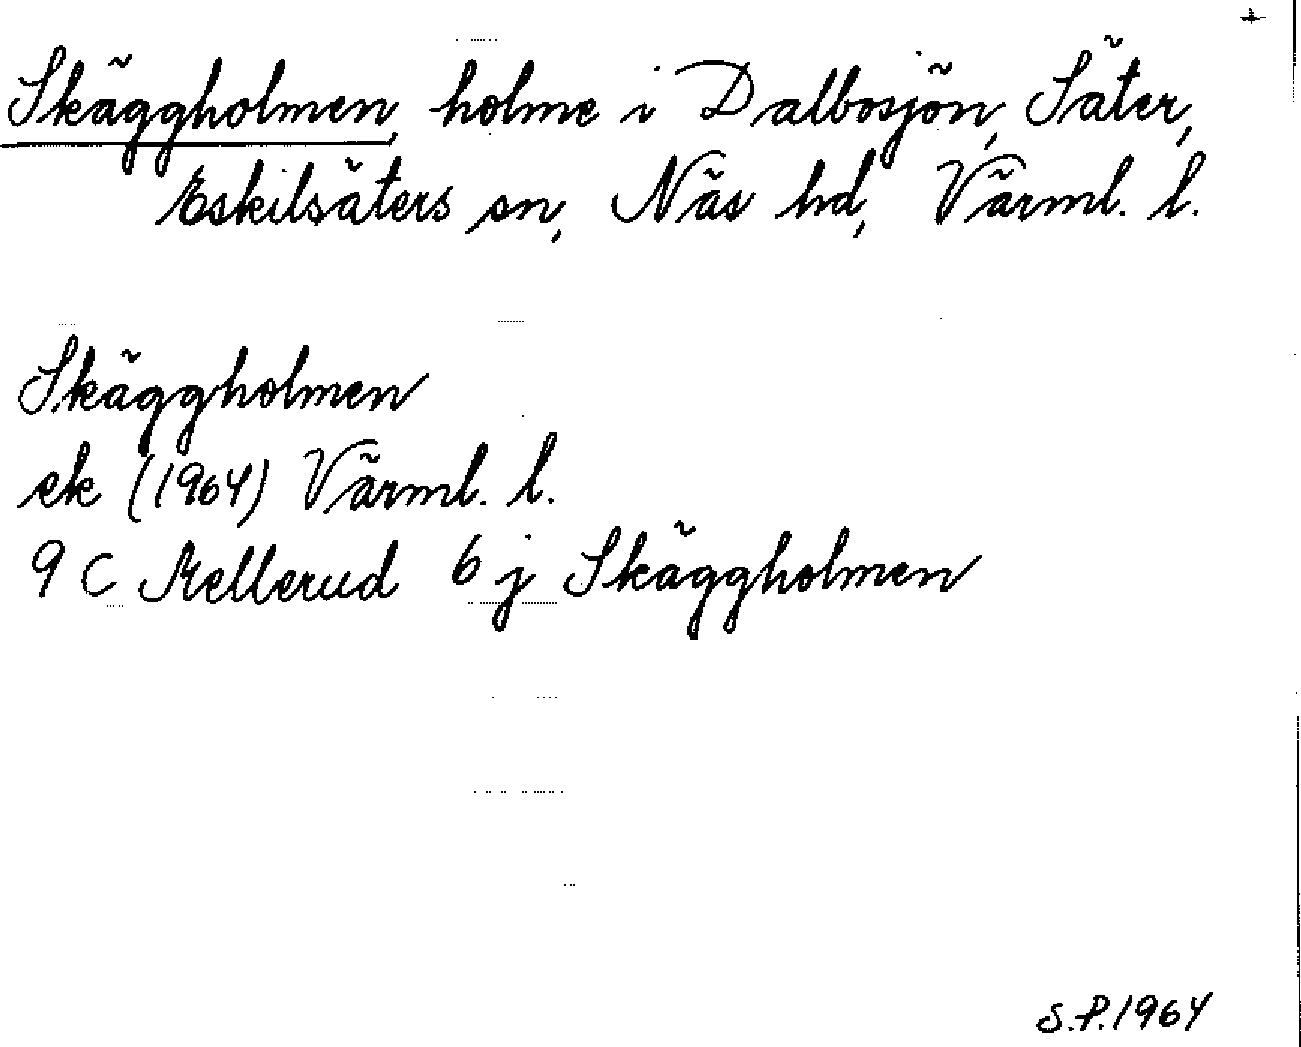 Skäggholmen, holme i Dalbosjön, Säter,
Eskilsäters sn, Näs hd, Värml. l.
Skäggholmen
ek (1964) Värml. l.
9 C Mellerud 6 j Skäggholmen
S.P. 1964